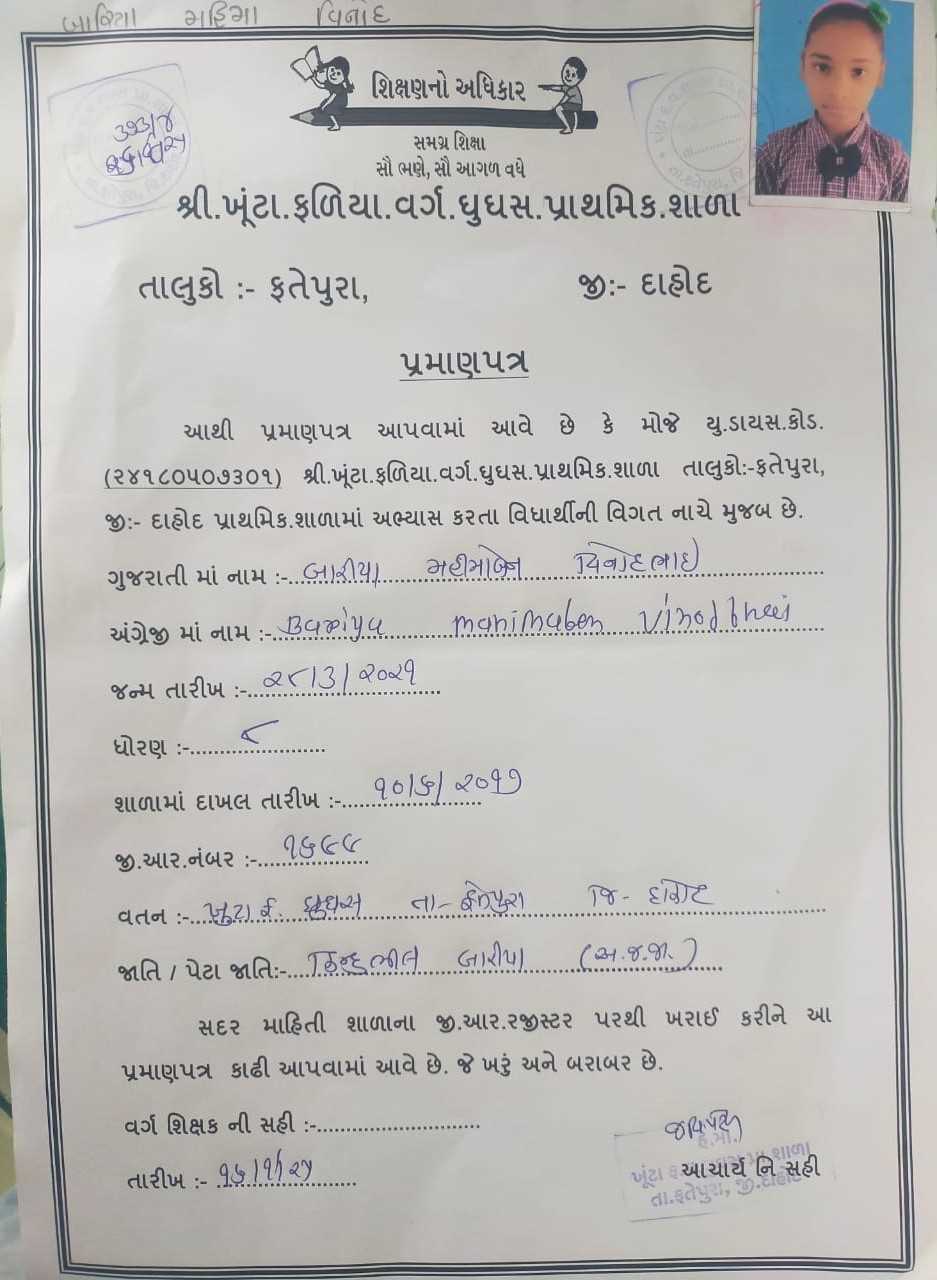 બારિયા મહિમા વિનોદ
શિક્ષણનો અધિકાર
સમગ્ર શિક્ષા
સૌ ભણે, સૌ આગળ વધે
શ્રી.ખૂંટા.ફળિયા.વર્ગ.ઘુઘસ.પ્રાથમિક.શાળા
તાલુકો :- ફતેપુરા, જી:- દાહોદ
પ્રમાણપત્ર
આથી પ્રમાણપત્ર આપવામાં આવે છે કે મોજે યુ.ડાયસ.કોડ.
(૨૪૧૮૦૫૦૭૩૦૧) શ્રી.ખૂંટા.ફળિયા.વર્ગ.ઘુઘસ.પ્રાથમિક.શાળા તાલુકો:-ફતેપુરા,
જી:- દાહોદ પ્રાથમિક.શાળામાં અભ્યાસ કરતા વિધાર્થીની વિગત નાચે મુજબ છે.
ગુજરાતી માં નામ :-..બારીયા મહીમાબેન વિનોદભાઈ
અંગ્રેજી માં નામ :-..Bariya mahimaben Vinodbhai
જન્મ તારીખ :-..
ધોરણ :-..૮
શાળામાં દાખલ તારીખ :-..૧૦/૬/૨૦૧૭
જી.આર.નંબર :-..
વતન :-..ખુટા ફ. ઘુઘસ તા- ફતેપુરા જિ- દાહોદ
જાતિ / પેટા જાતિ:-..હિન્દુ ભીલ બારીયા (અ.જ.જા.)
સદર માહિતી શાળાના જી.આર.રજીસ્ટર પરથી ખરાઈ કરીને આ
પ્રમાણપત્ર કાઢી આપવામાં આવે છે. જે ખરું અને બરાબર છે.
વર્ગ શિક્ષક ની સહી :-..
તારીખ :- ૧૬/૧/૨૫
આચાર્ય નિ સહી
તા.ફતેપુરા, જી.દાહોદ